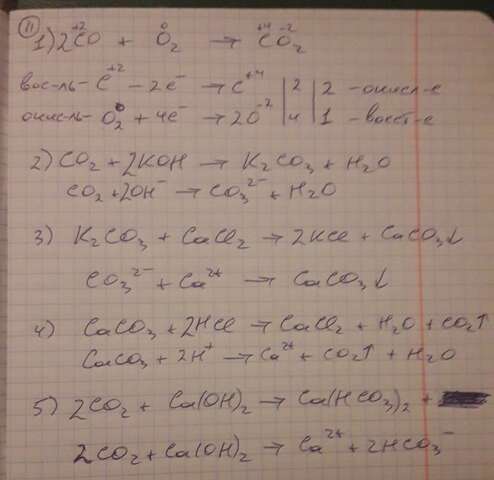 11
1) 2C⁺²O + O₂⁰ → C⁺⁴O₂⁻²
вос-ль - C⁺² - 2e⁻ → C⁺⁴ | 2 | 2 - окисл-е
окисл-ль - O₂⁰ + 4e⁻ → 2O⁻² | 4 | 1 - восст-е
2) CO₂ + 2KOH → K₂CO₃ + H₂O
CO₂ + 2OH⁻ → CO₃²⁻ + H₂O
3) K₂CO₃ + CaCl₂ → 2KCl + CaCO₃↓
CO₃²⁻ + Ca²⁺ → CaCO₃↓
4) CaCO₃ + 2HCl → CaCl₂ + H₂O + CO₂↑
CaCO₃ + 2H⁺ → Ca²⁺ + CO₂↑ + H₂O
5) 2CO₂ + Ca(OH)₂ → Ca(HCO₃)₂ +
2CO₂ + Ca(OH)₂ → Ca²⁺ + 2HCO₃⁻